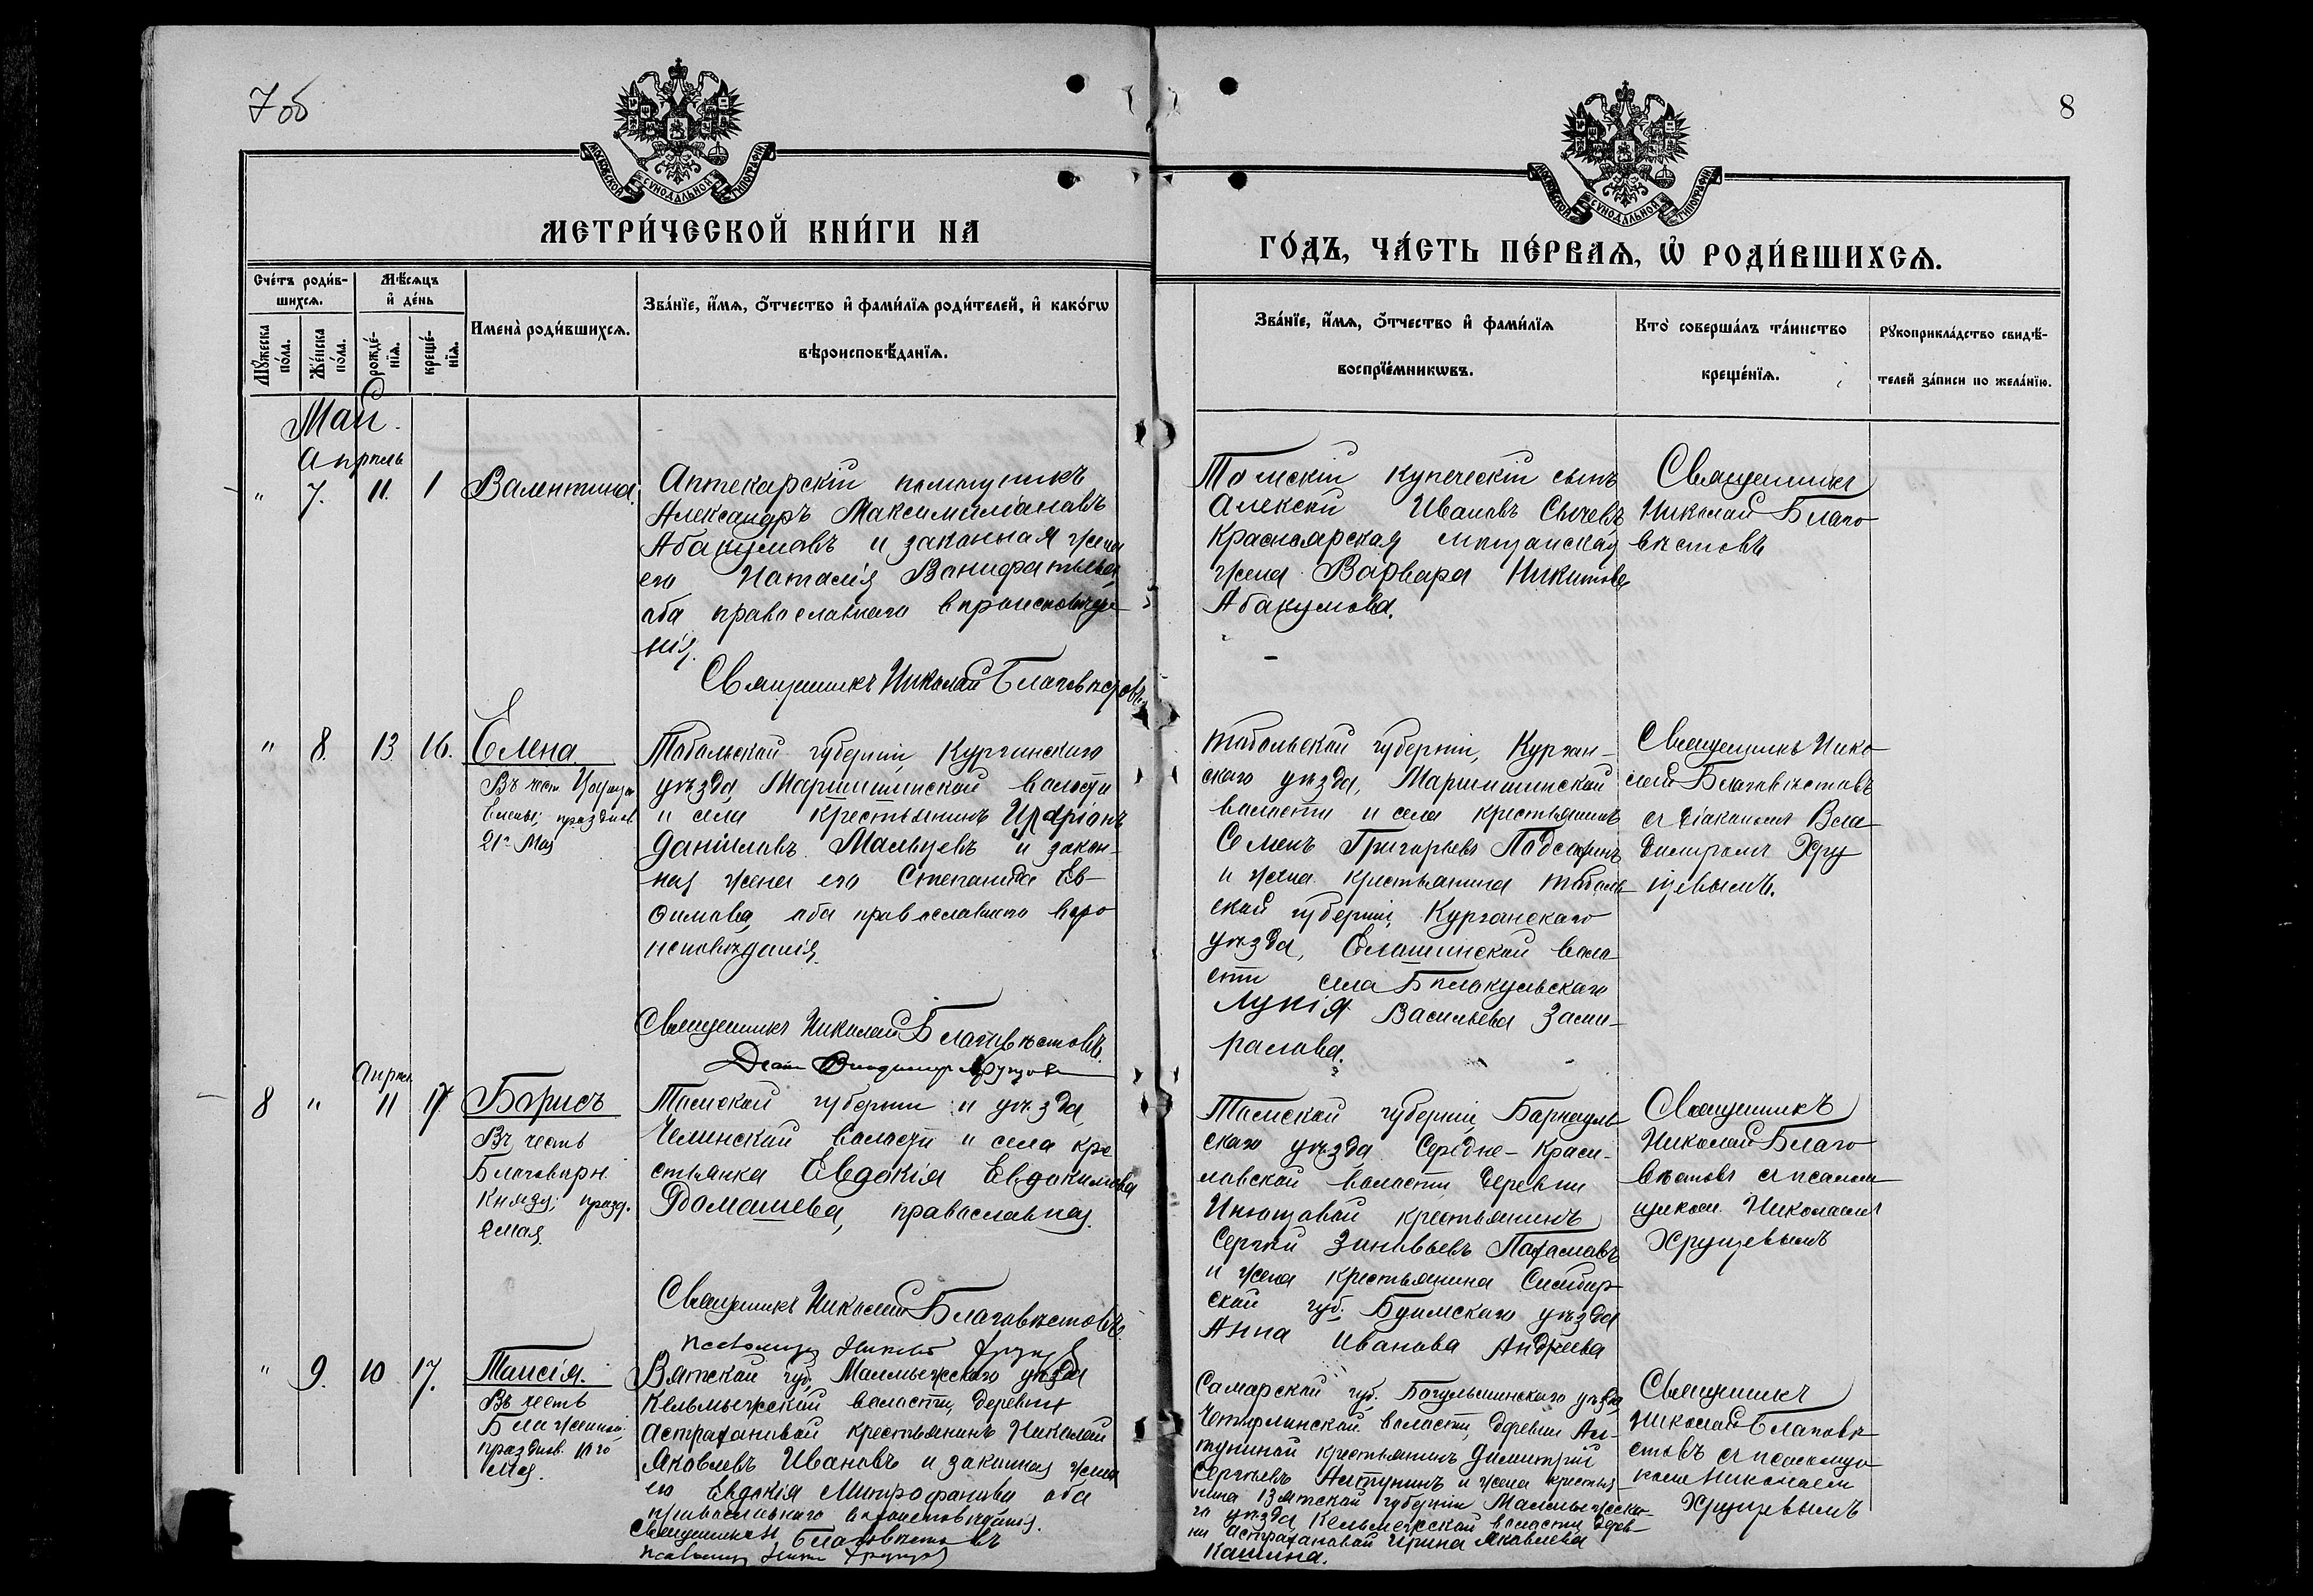 7 об
8
МОСКОВСКОЙ СУНОДАЛЬНОЙ ТИПОГРАФІИ
МОСКОВСКОЙ СУНОДАЛЬНОЙ ТИПОГРАФІИ
МЕТРИ́ЧЕСКОЙ КНИ́ГИ НА
ГО́ДЪ, ЧА́СТЬ ПЕ́РВАѦ, Ѡ҆ РОДИ́ВШИХСѦ.
Счє́тъ роди́в-
шихсѧ.
Мѣ́сѧцъ
и҆ де́нь
Мꙋ́жеска
по́ла.
Же́нска
по́ла.
рожде́-
нїѧ.
креще́-
нїѧ.
Имена̀ роди́вшихсѧ.
Зва́нїе, и҆́мѧ, ѻ҆́тчество и҆ фами́лїѧ роди́телей, и҆ како́гѡ
вѣроисповѣ́данїѧ.
Зва́нїе, и҆́мѧ, ѻ҆́тчество и҆ фами́лїѧ
воспрїе́мникѡвъ.
Кто̀ соверша́лъ та́инство
креще́нїѧ.
Рꙋкоприкла́дство свидѣ́-
телей за́писи по жела́нїю.
Май.
Апрѣль
" 7. 11. 1 Валентина.
Аптекарскій помощникъ
Александръ Максимиліановъ
Абакумовъ и законная жена
его Наталія Вонифатьева
оба православнаго вѣроисповѣда-
нія.
Священникъ Николай Благовѣстовъ
Томскій купеческій сынъ
Алексѣй Ивановъ Сычевъ
Красноярская мѣщанская
жена Варвара Никитова
Абакумова.
Священникъ
Николай Благо
вѣстовъ
" 8. 13 16. Елена.
Въ чест. Царицы
Елены; праздн.
21го Мая
Тобольской губерніи, Курганскаго
уѣзда Маришинской волости
и села крестьянинъ Иларіонъ
Даніиловъ Мальцевъ и закон-
ная жена его Степанида Ев-
ѳимова, оба православнаго вѣро
исповѣданія.
Священникъ Николай Благовѣстовъ.
Владимиръ Хрущовъ
Тобольской губерніи, Курган-
скаго уѣзда, Маришинской
волости и села крестьянинъ
Семенъ Григорьевъ
и жена крестьянина Тоболь-
ской губерніи, Курганскаго
уѣзда, воло-
сти села Бѣлокульскаго
Лукія Васильева Зами-
ралова.
Священникъ Нико
лай Благовѣстовъ
съ діакономъ Вла-
димиромъ Хру
щевымъ.
Апрѣл
8 " 11 17 Борисъ
Въ честь
Благовѣрн.
Князя; празд.
2 мая.
Томской губерніи и уѣзда,
волости и села кре
стьянка Евдокія Евдокимова
Ѳомашева, православная.
Священникъ Николай Благовѣстовъ.
Псаломщ. Никол. Хрущев
Томской губерніи, Барнауль-
скаго уѣзда Середне-Краси-
ловской волости деревни
Инюшовой крестьянинъ
Сергѣй Зиновьевъ
и жена крестьянина Симбир-
ской губ. Буимскаго уѣзда
Анна Иванова Андреева
Священникъ
Николай Благо
вѣстовъ съ псалом
щикомъ Николаемъ
Хрущевымъ
" 9. 10 17. Таисія.
Въ честь
Блаженной,
праздн. 10го
Мая.
Вятской губ. Малмыжскаго уѣзда
Кельмыжской волости, деревни
Астрахановой крестьянинъ Николай
Яковлевъ Ивановъ и законная жена
его Евдокія Митрофанова оба
православнаго вѣроисповѣданія.
Священникъ Н Благовѣстовъ
Псаломщ. Никол. Хрущев
Самарской губ. Богульминскаго уѣзда,
волости деревни Ал-
туниной крестьянинъ Димитрій
Сергѣевъ Алтунинъ и жена крестья-
нина Вятской губерніи Малмыжска-
го уѣзда, Кельмежской волости, дерев-
ни Астрахановой Ирина Яковлева
Кашина.
Священникъ
Николай Благовѣ
стовъ съ псаломщи
комъ Николаемъ
Хрущевымъ